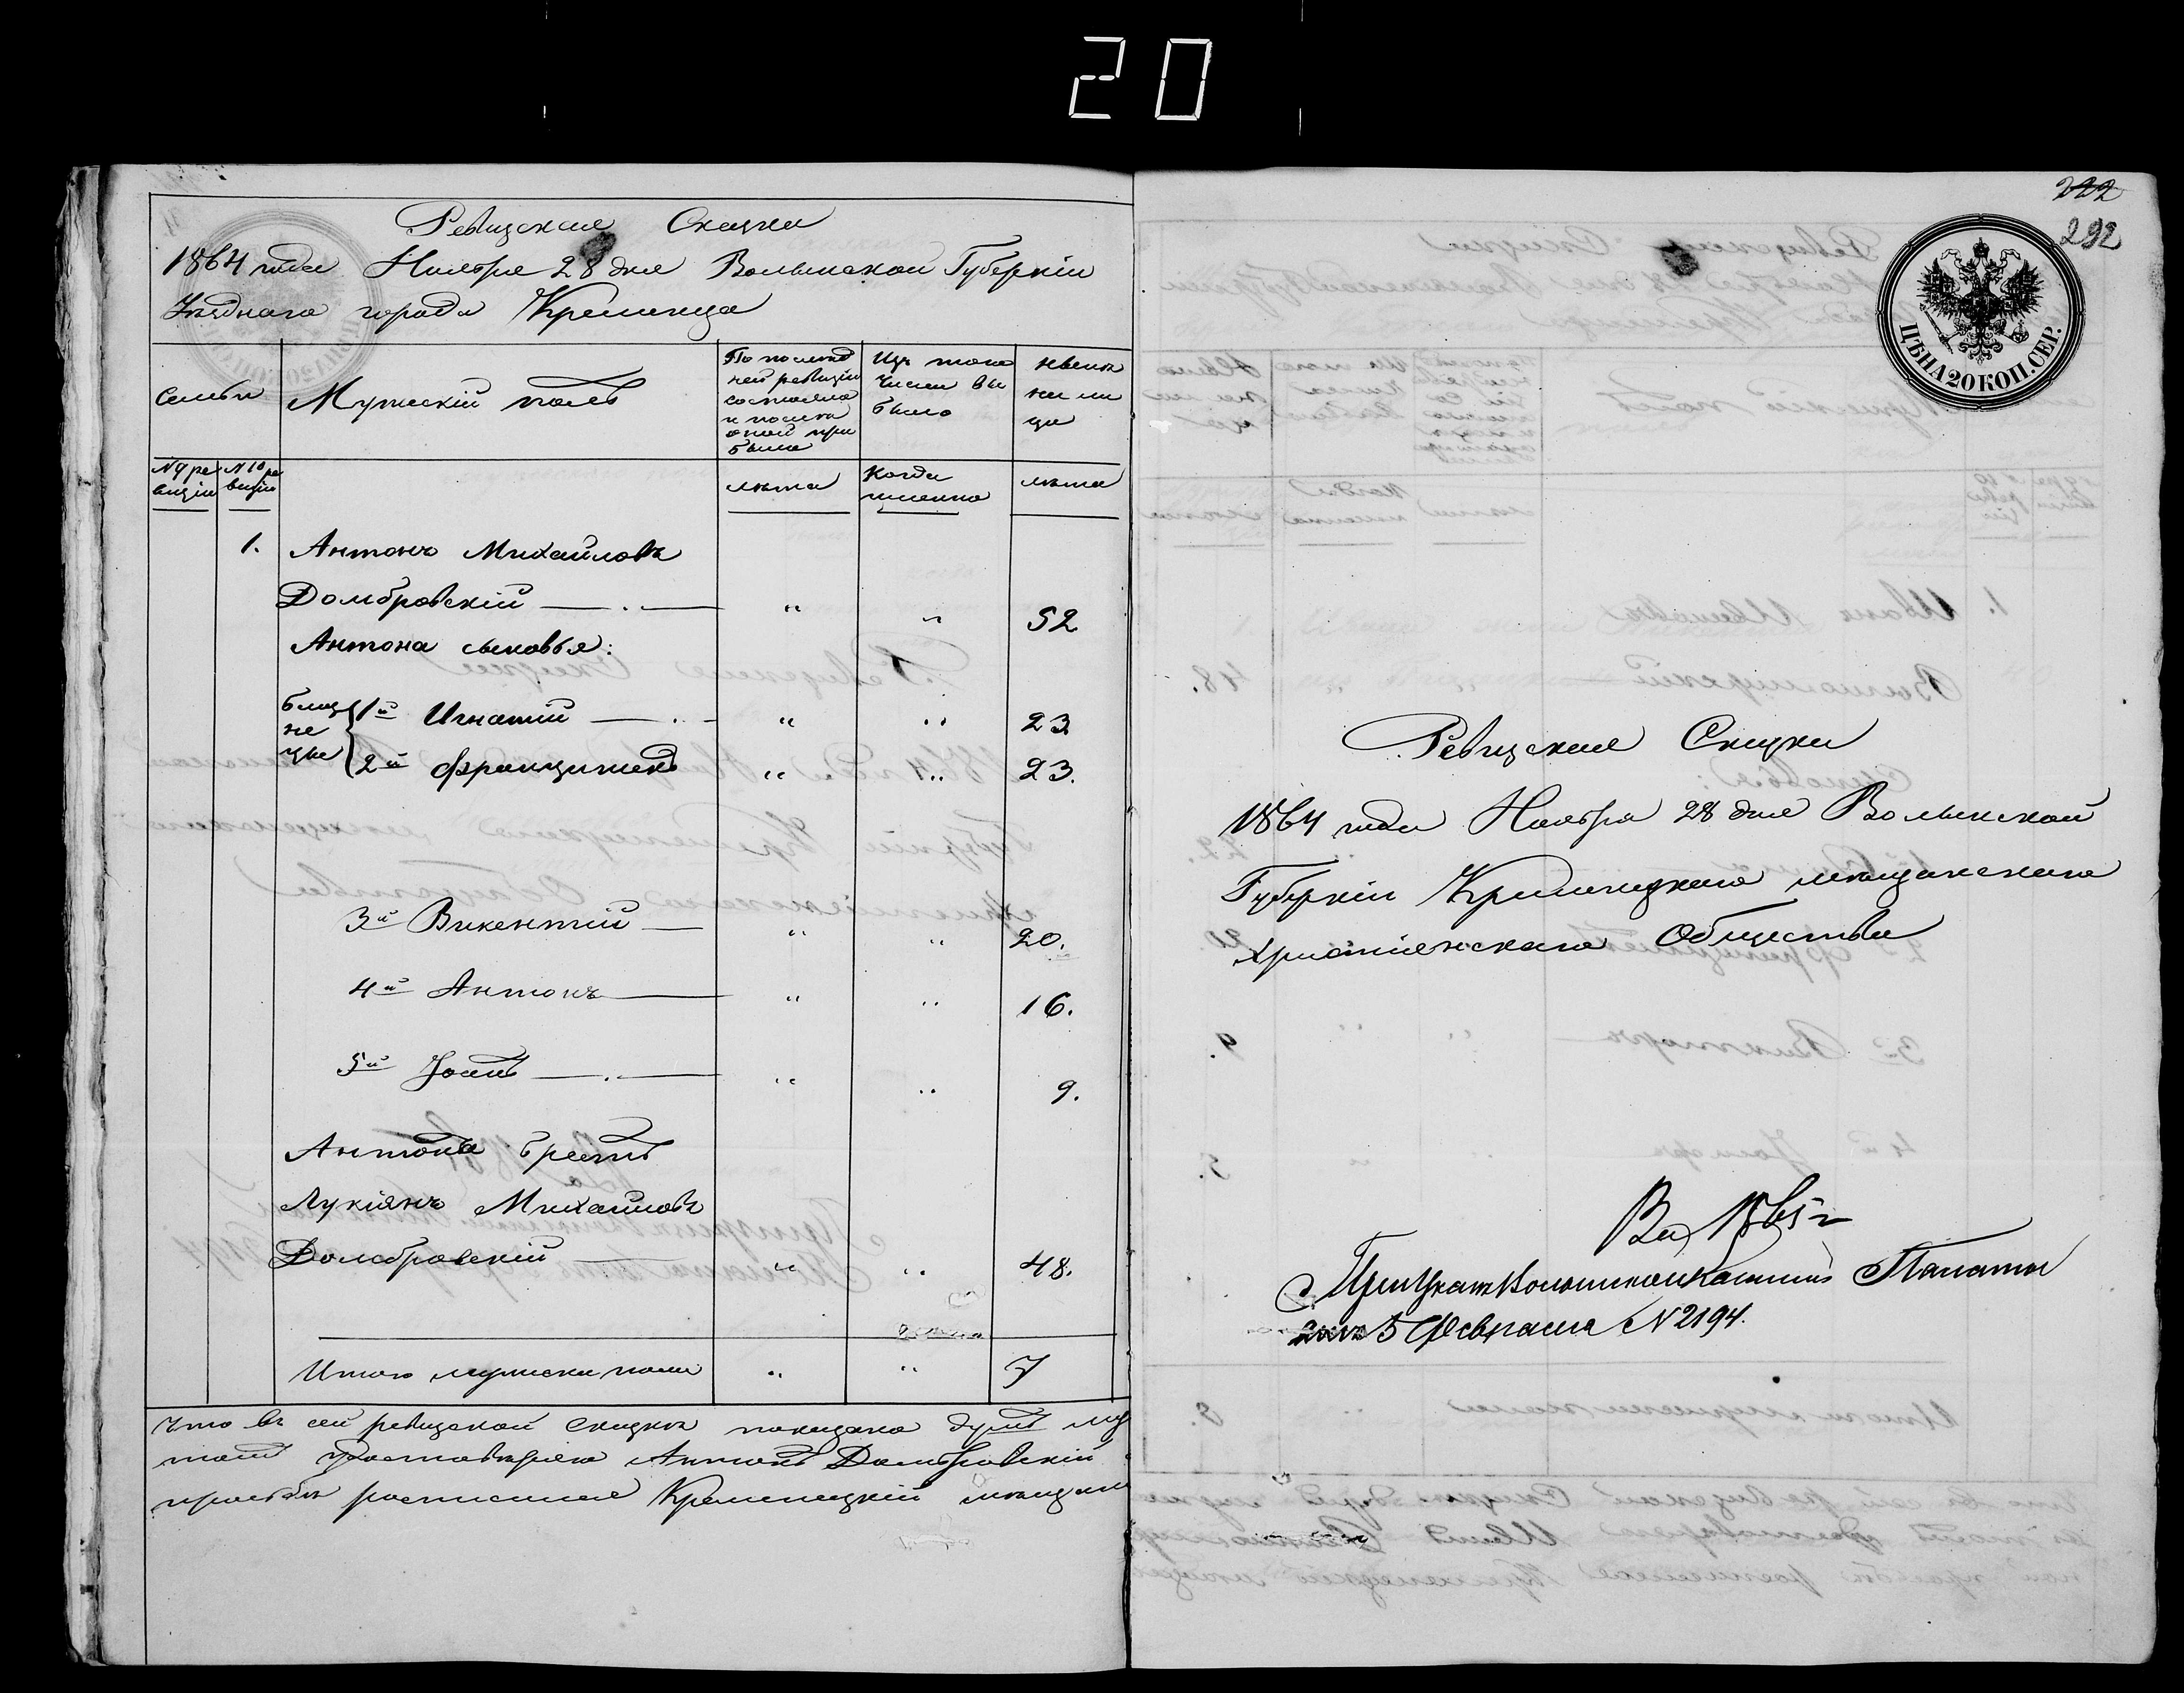 20
Ревизская Сказка
1864 года Ноября 28 дня Волынской Губерніи
Уезднаго города Кременца
Семьи
Мужескій полъ
По послѣд
ней ревизіи
состояло
и послѣ
оной при
было
Изъ того
числа вы
было
Нынѣ
на ли
цо
№ 9 ре
визіи
№ 10 ре
визіи
лѣта
Когда
именно
лѣта
1. Антонъ Михайловъ
Домбровскій — . — " " 52
Антона сыновья:
близ
не
цы
1й Игнатій — . — " " 23
2й Францишекъ " " 23.
3й Викентій — " " 20.
4й Антонъ — " " 16.
5й — . — " " 9.
Антона братъ
Лукіянъ Михайловъ
Домбровскій — " " 48.
Итого мужеска пола " " 7
Что въ сей ревизской сказкѣ показано душъ му
Антонъ Домбровскій
Кременецкій мѣщани
222
292
ЦѢНА 20 КОП. СЕР.
Ревизская Сказка
1864 года Ноября 28 дня Волынской
Губерніи Кременецкаго мѣщанскаго
христіянскаго Общества
1865 г
При Указѣ Волынской Казенной Палаты
5 Февраля № 2194.